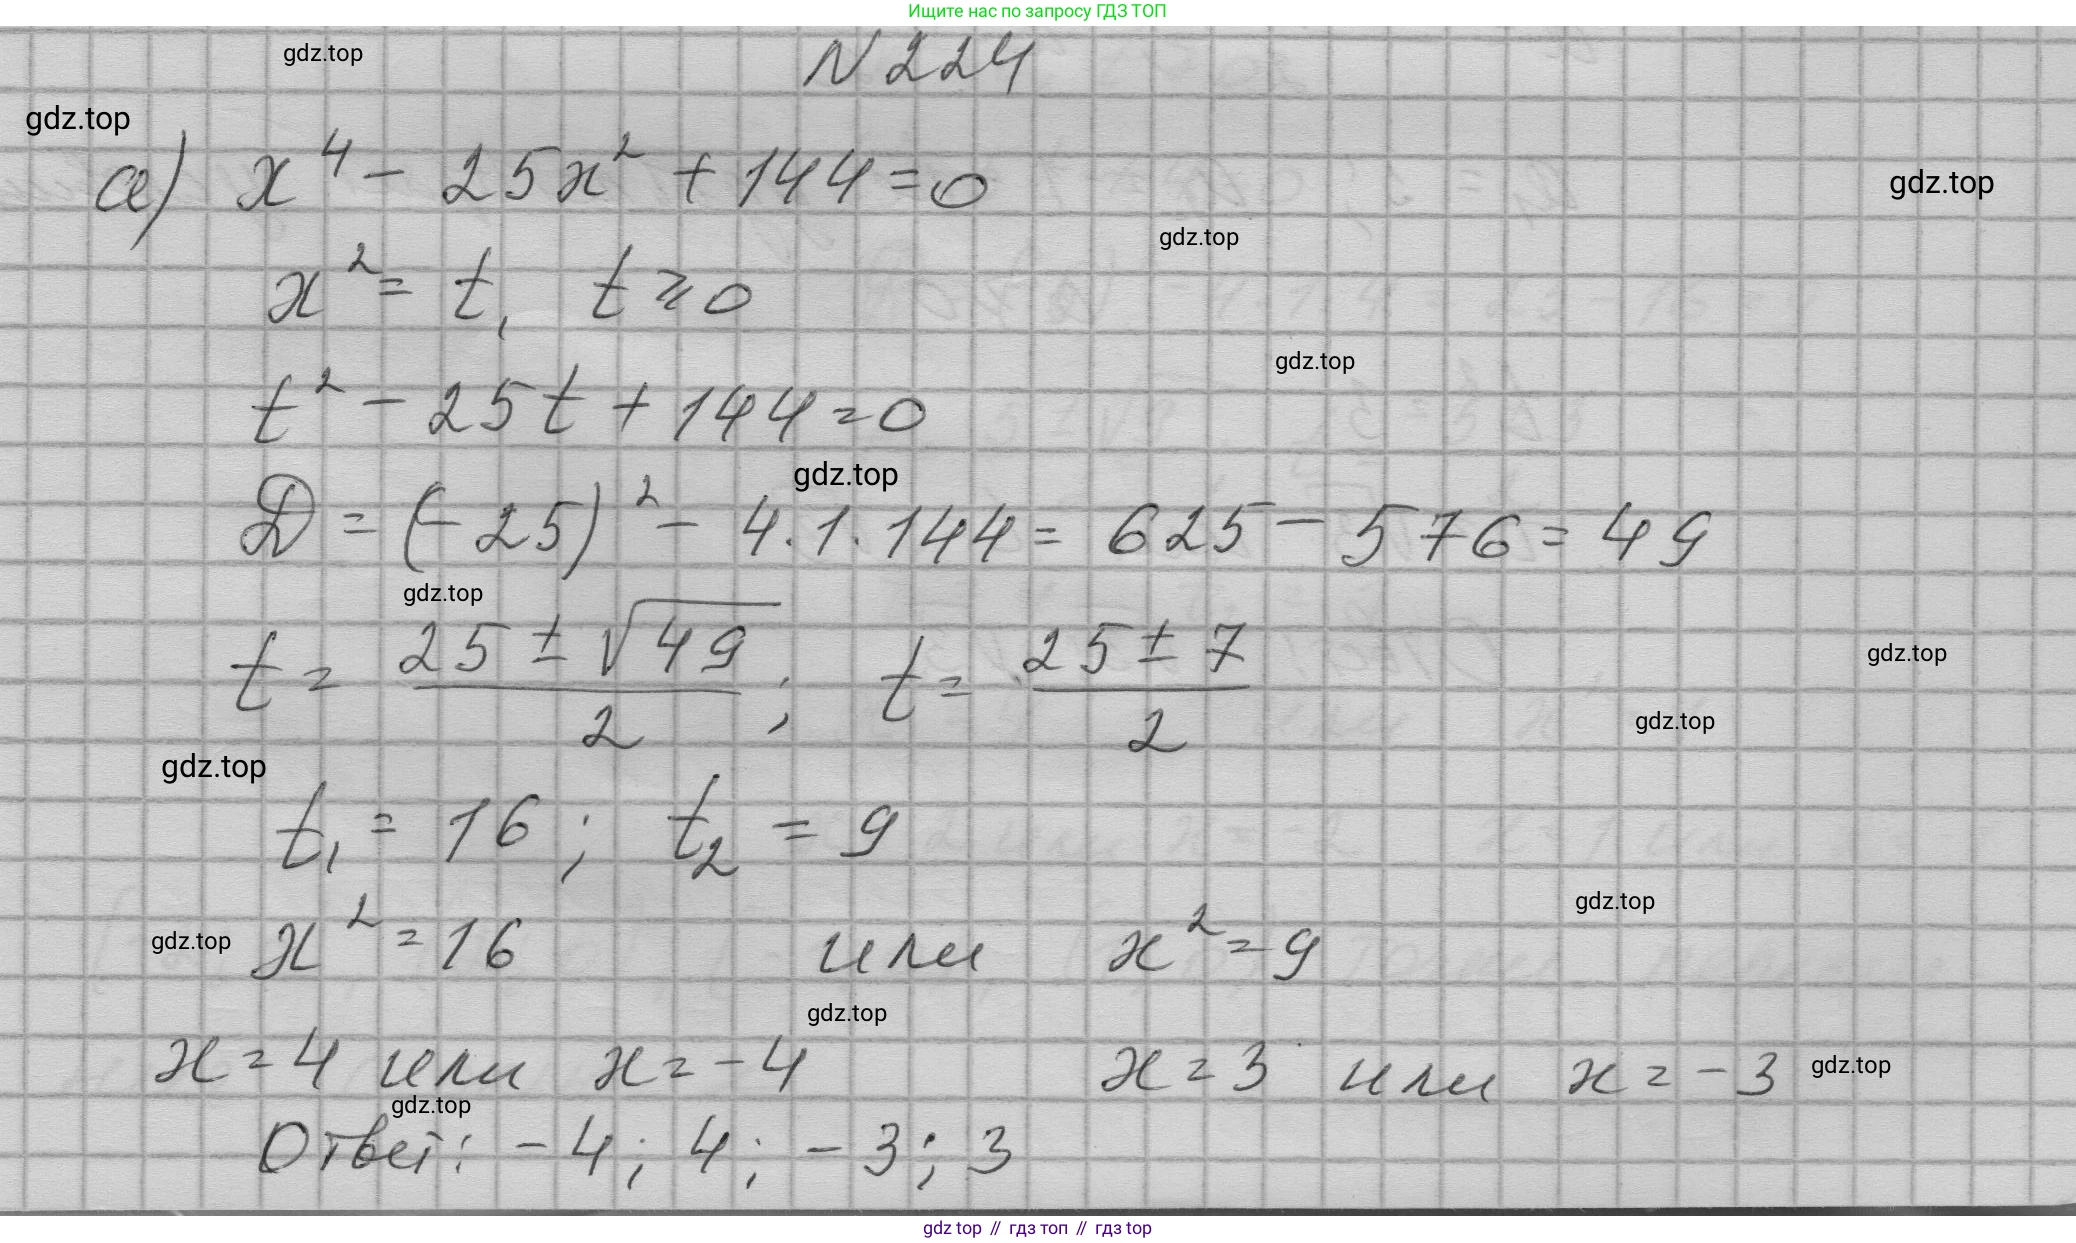 Ищите нас по запросу ГДЗ ТОП
gdz.top
N 224
gdz.top
а) x⁴ - 25x² + 144 = 0
gdz.top
gdz.top
x² = t, t ⩾ 0
gdz.top
t² - 25t + 144 = 0
gdz.top
D = (-25)² - 4·1·144 = 625 - 576 = 49
gdz.top
t = (25 ± √49)/2; t = (25 ± 7)/2
gdz.top
gdz.top
gdz.top
t₁ = 16; t₂ = 9
gdz.top
gdz.top x² = 16 или x² = 9
gdz.top
x = 4 или x = -4 x = 3 или x = -3 gdz.top
gdz.top
Ответ: -4; 4; -3; 3
gdz top // гдз топ // гдз top